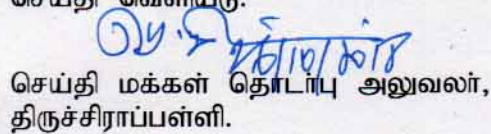 செய்தி வெளியீடு.
செய்தி மக்கள் தொடர்பு அலுவலர்,
திருச்சிராப்பள்ளி.